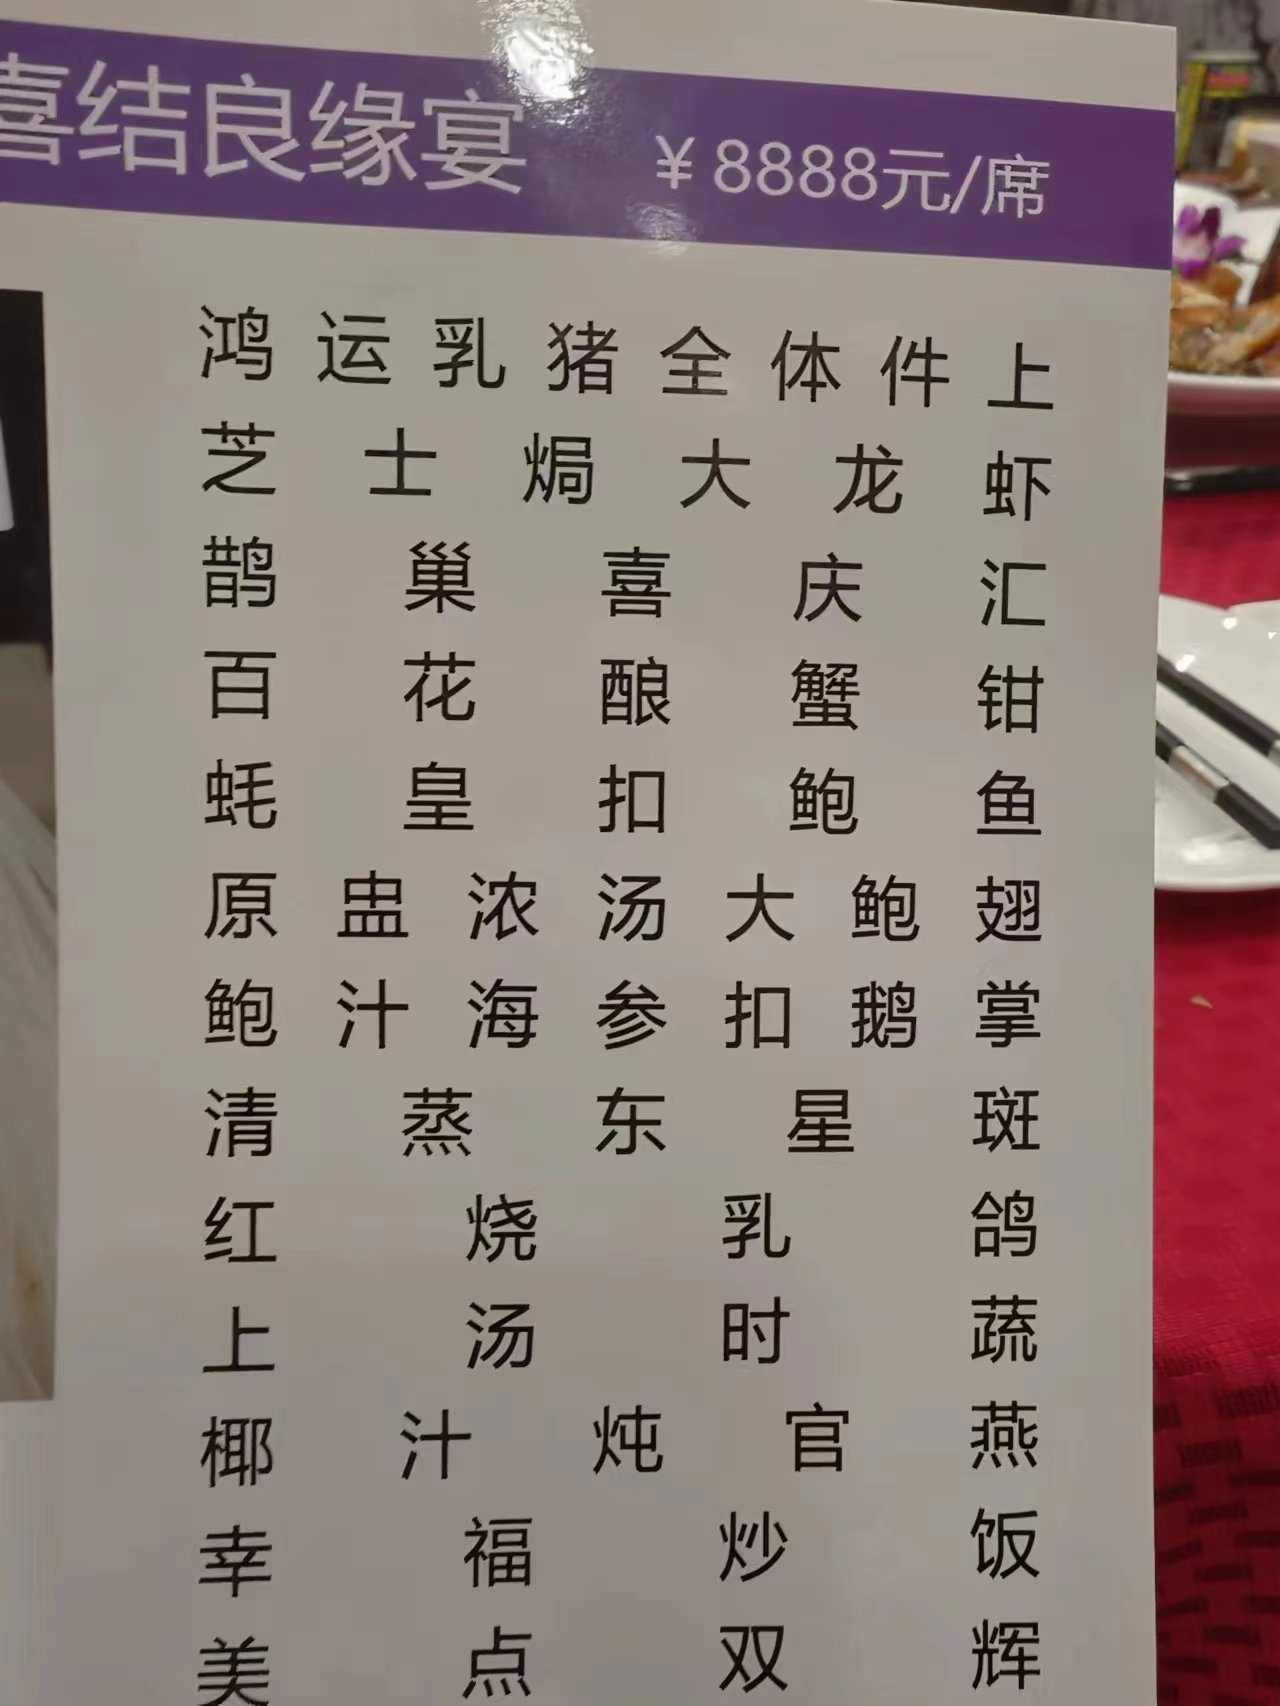 喜结良缘宴 ¥8888元/席
鸿运乳猪全体件上
芝士焗大龙虾
鹊巢喜庆汇
百花酿蟹钳
蚝皇扣鲍鱼
原盅浓汤大鲍翅
鲍汁海参扣鹅掌
清蒸东星斑
红烧乳鸽
上汤时蔬
椰汁炖官燕
幸福炒饭
美点双辉